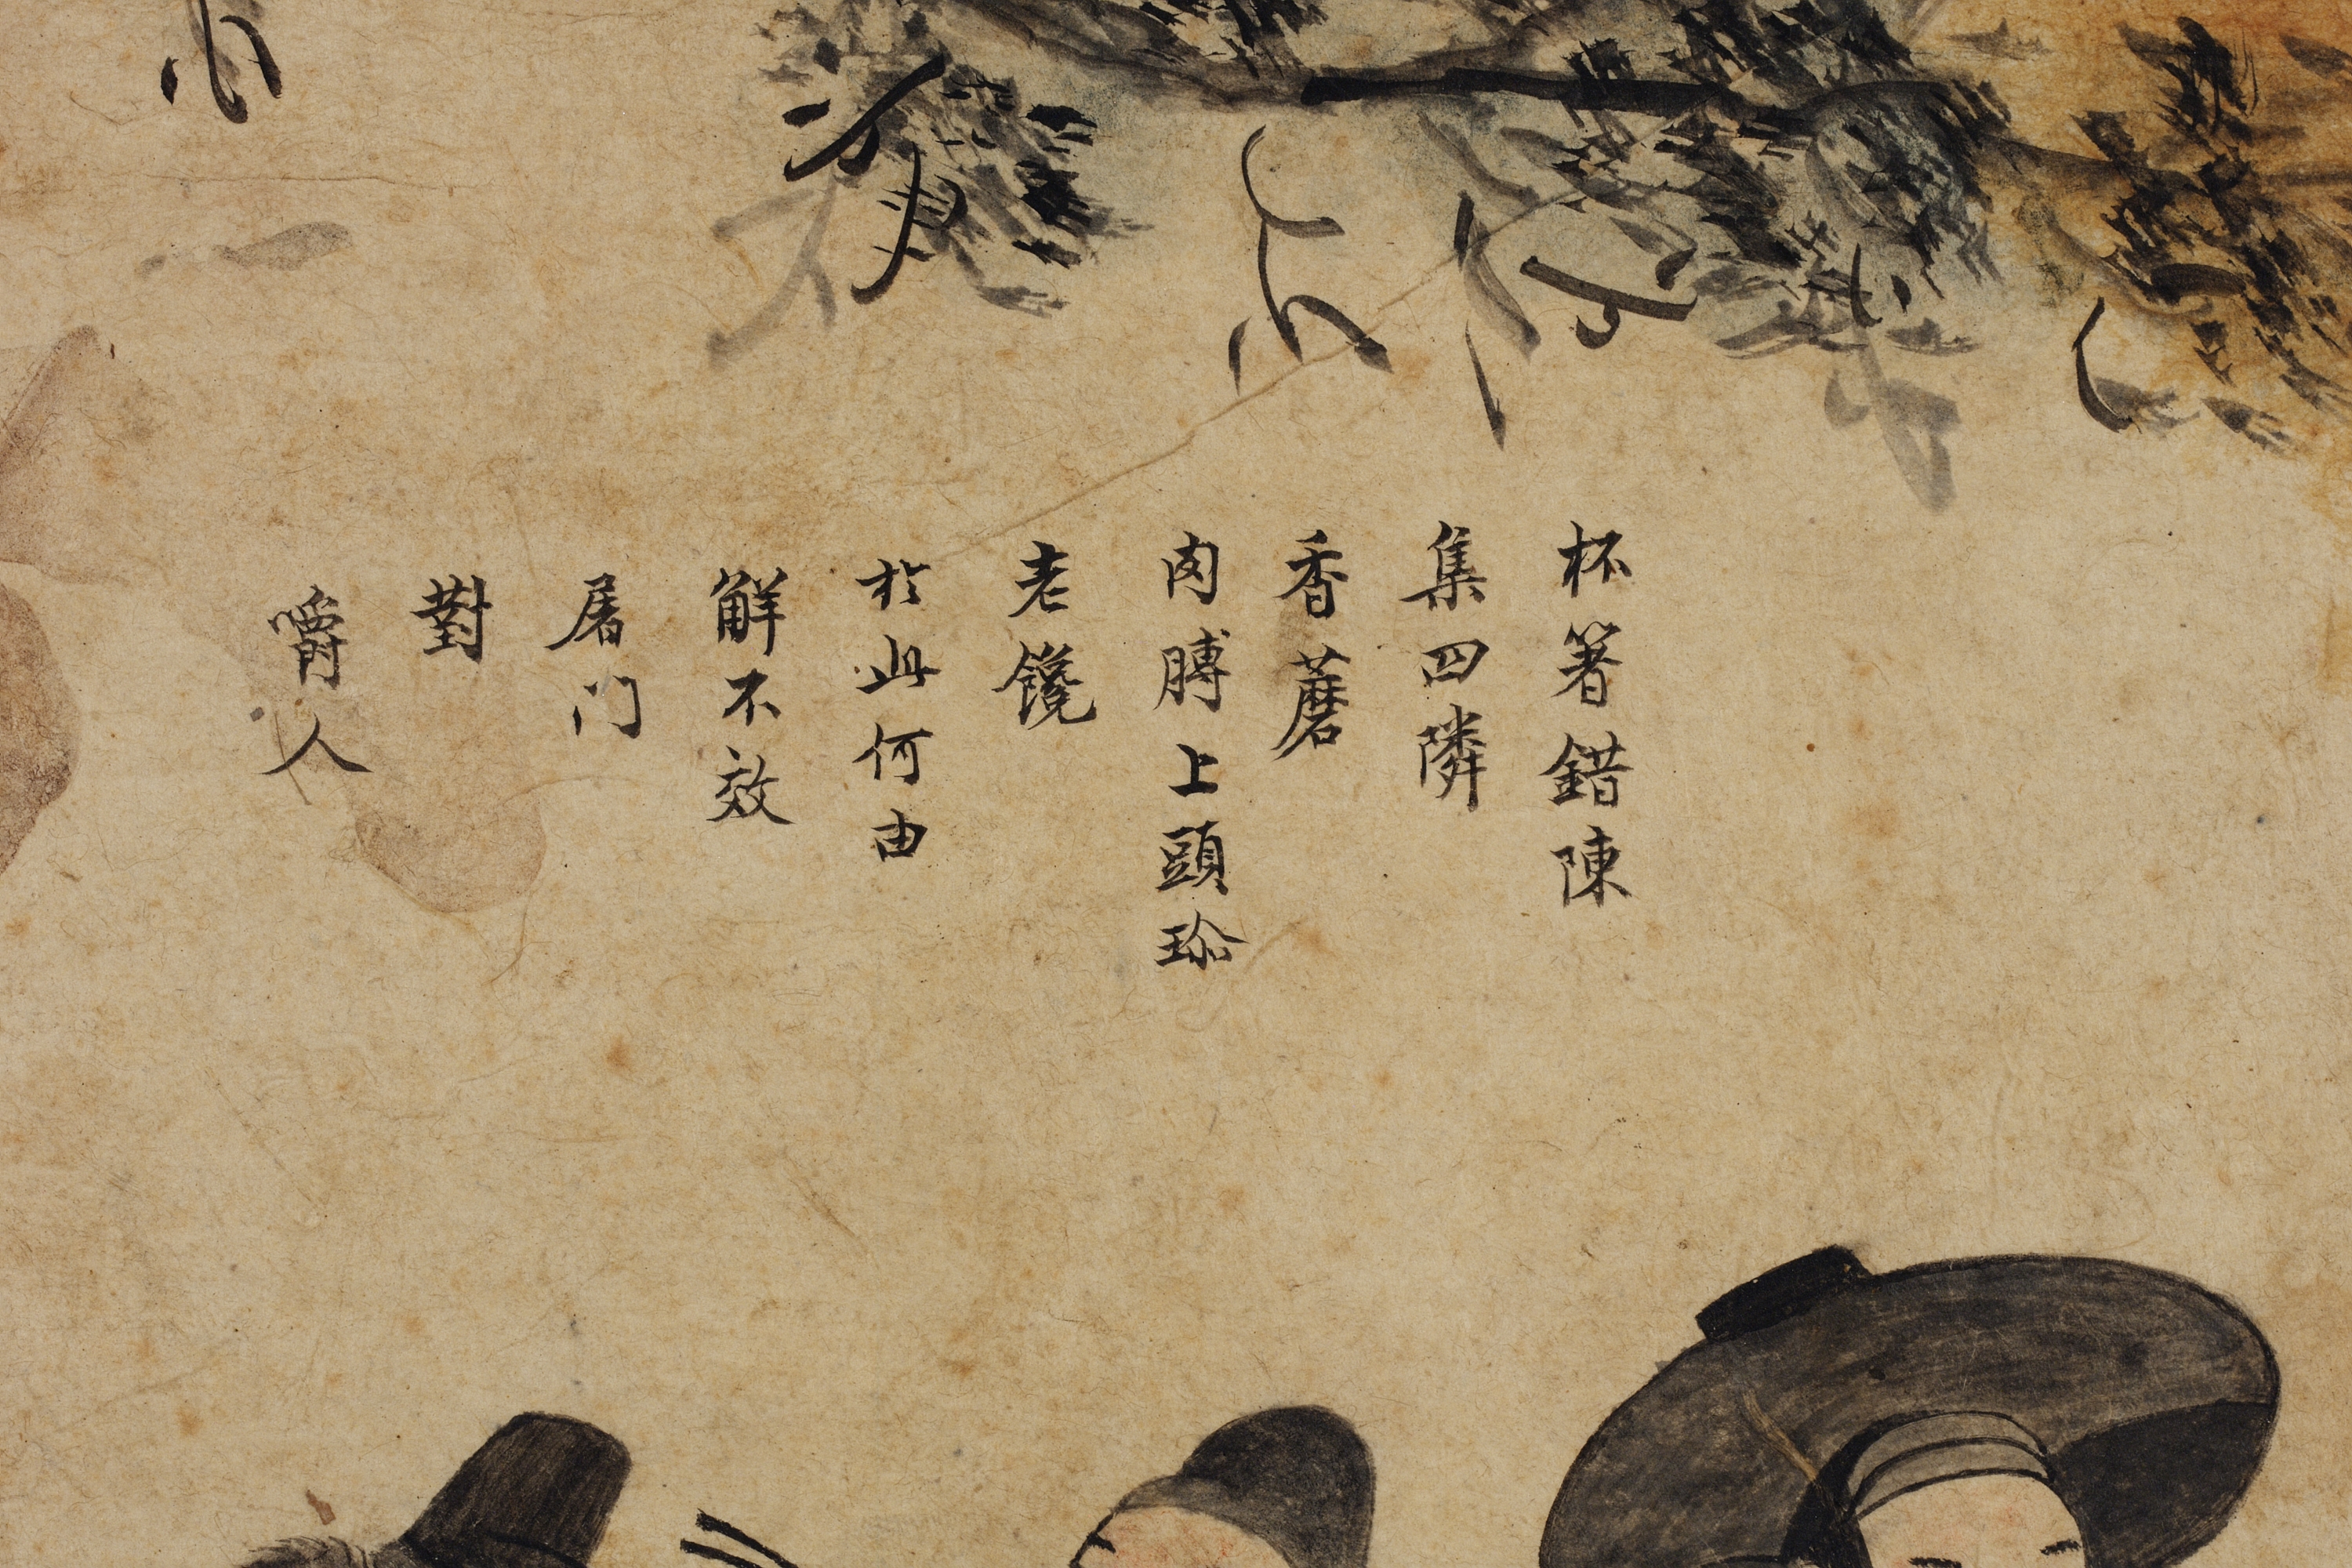 杯箸錯陳
集四隣
香蘑
肉膊上頭珎
老饞
於此何由
解不效
屠门
對
嚼人